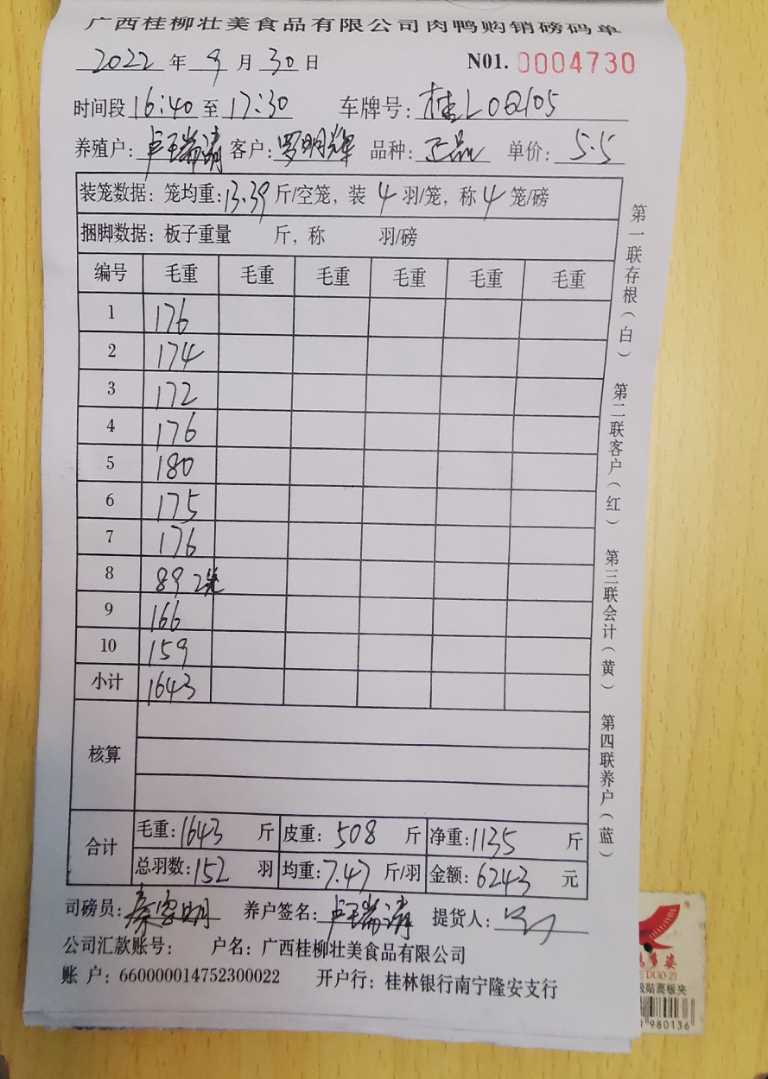 广西桂柳壮美食品有限公司肉鸭购销磅码单
2022 年 9 月 30 日 N01. 0004730
时间段 16:40 至 17:30 车牌号: 桂L0Q105
养殖户: 卢瑞清 客户: 罗明辉 品种: 正品 单价: 5.5
装笼数据: 笼均重: 13.39 斤/空笼, 装 4 羽/笼, 称 4 笼/磅
捆脚数据: 板子重量 斤, 称 羽/磅
编号 毛重 毛重 毛重 毛重 毛重 毛重
1 176
2 174
3 172
4 176
5 180
6 175
7 176
8 89 2笼
9 166
10 159
小计 1643
核算
合计 毛重: 1643 斤 皮重: 508 斤 净重: 1135 斤
总羽数: 152 羽 均重: 7.47 斤/羽 金额: 6243 元
司磅员: 养户签名: 卢瑞清 提货人:
公司汇款账号: 户名: 广西桂柳壮美食品有限公司
账 户: 660000014752300022 开户行: 桂林银行南宁隆安支行
第一联存根(白) 第二联客户(红) 第三联会计(黄) 第四联养户(蓝)
多姿
DUO ZI
980136